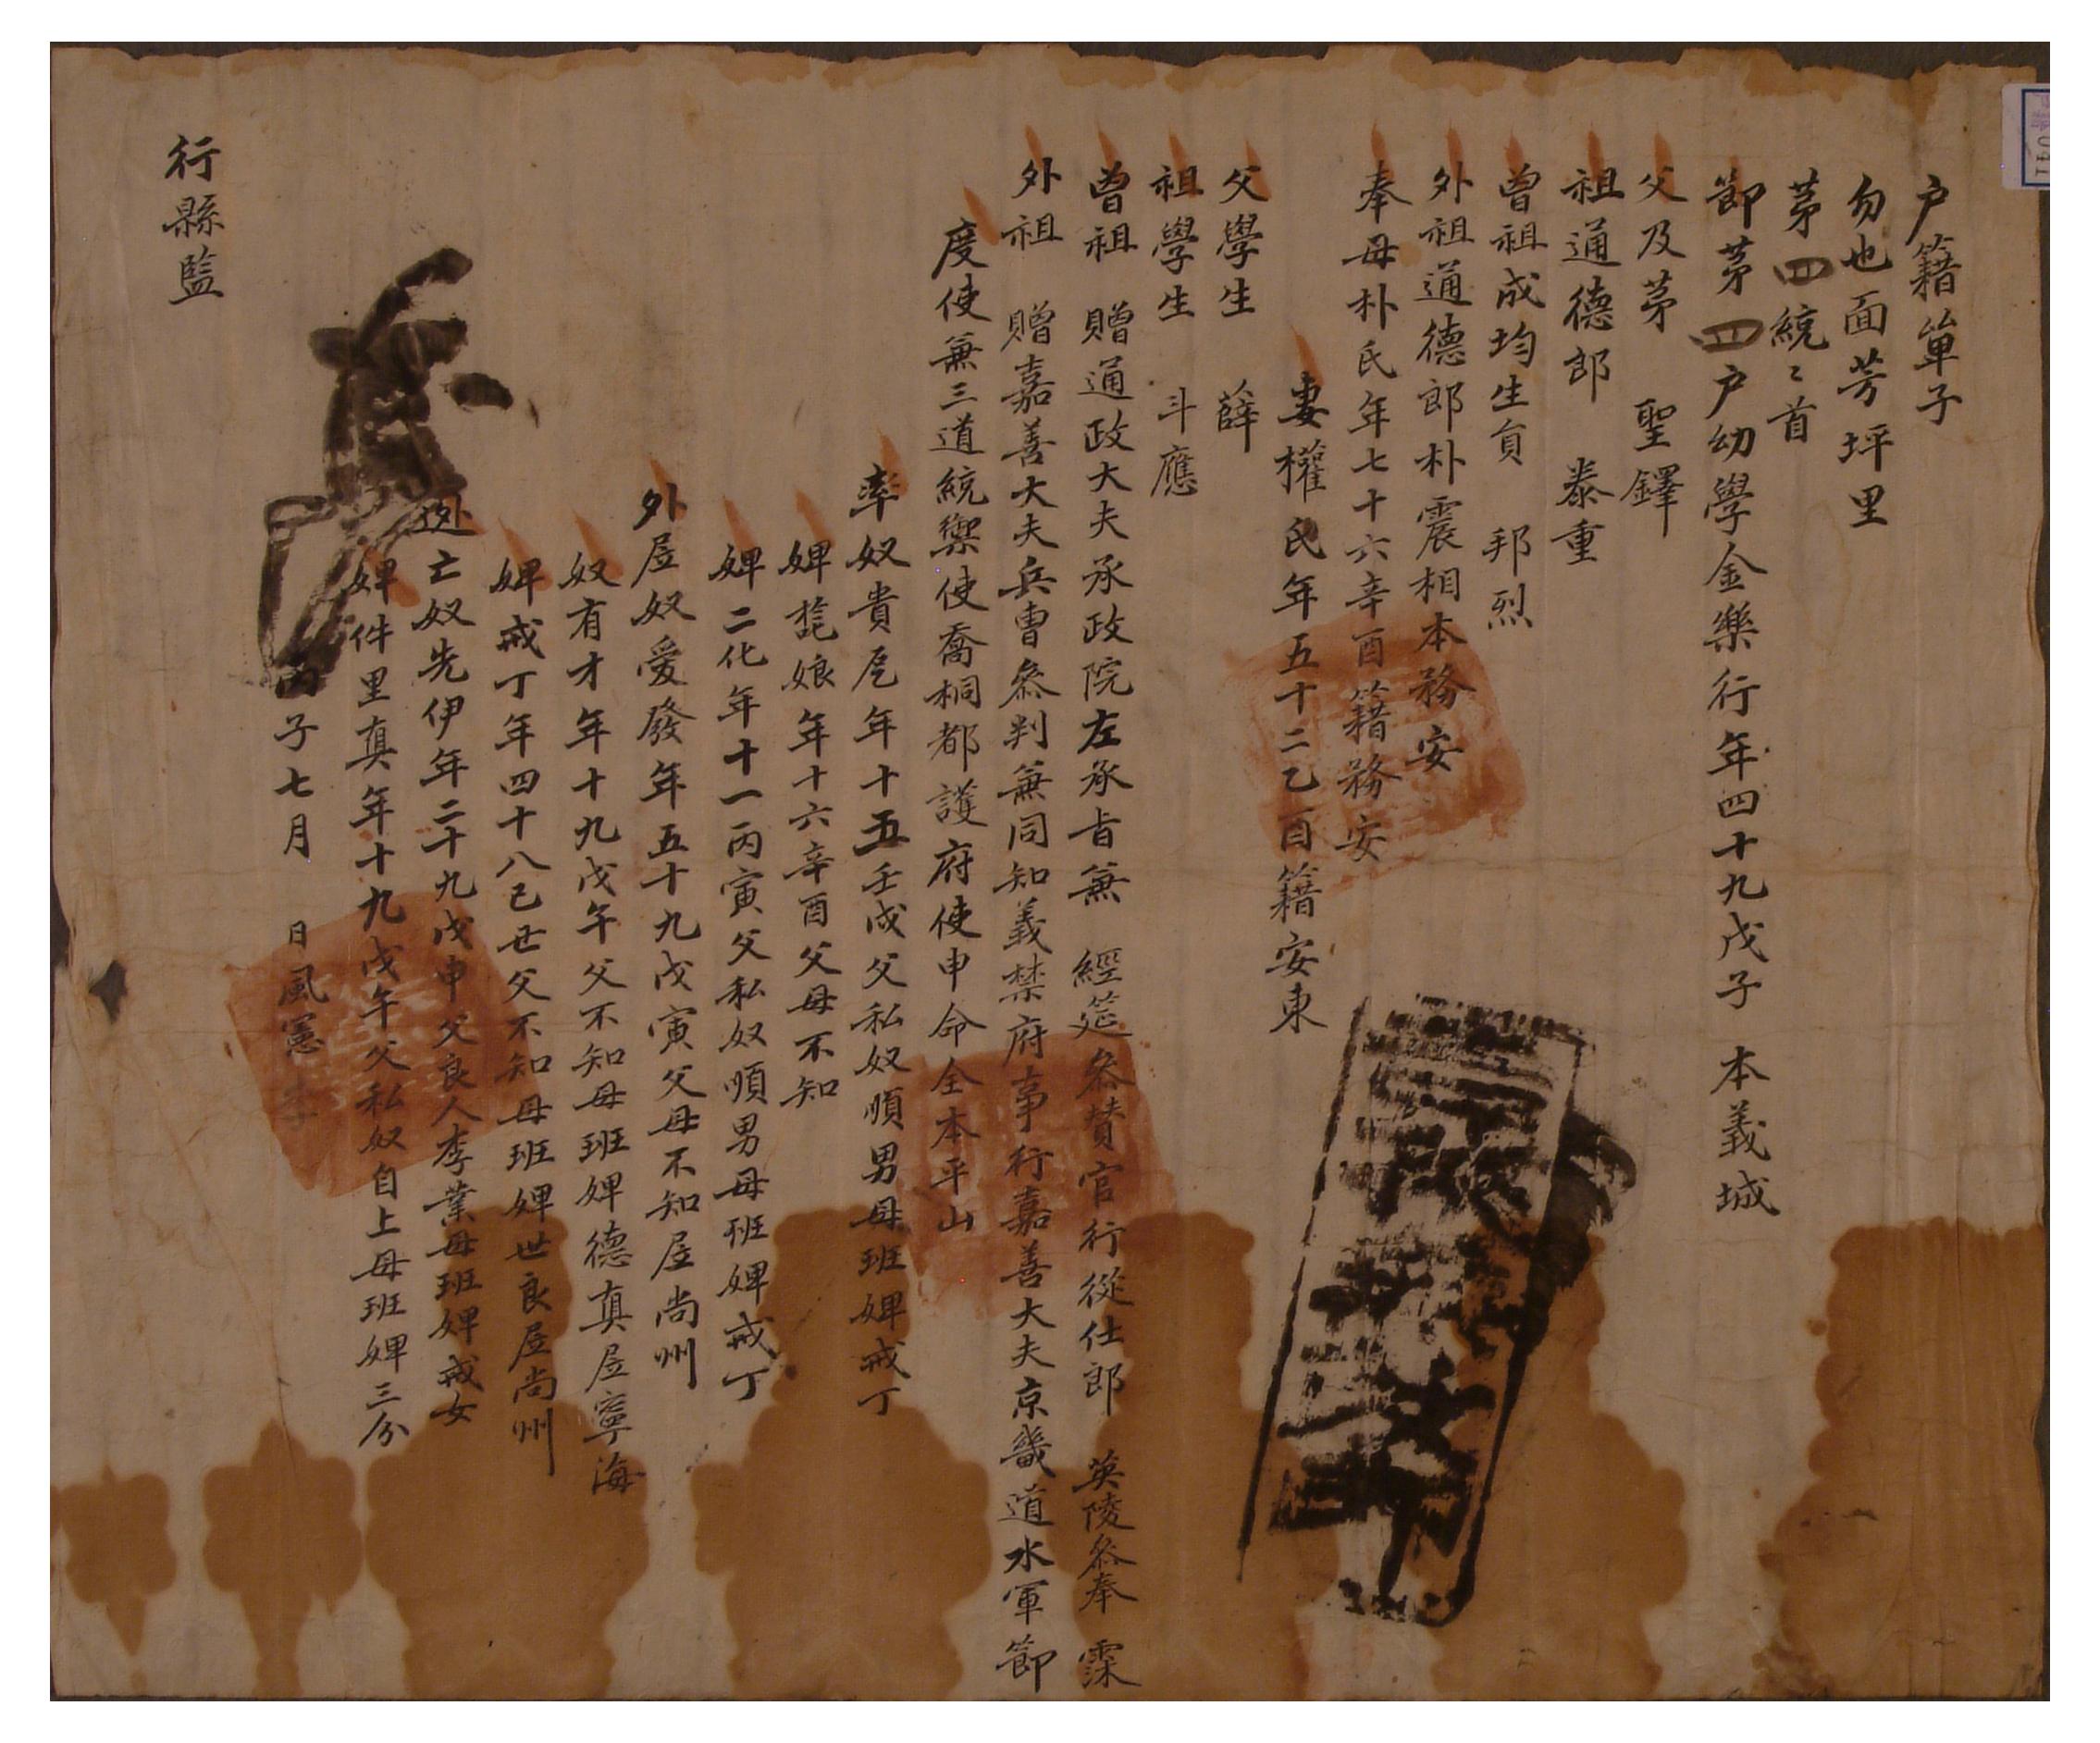 戶籍單子
勿也面芳坪里
茅四統統首
節茅四戶幼學金樂行年四十九戊子 本義城
父及茅 聖鐸
祖通德郎 泰重
曾祖成均生員 邦烈
外祖通德郎朴震相本務安
奉母朴氏年七十六辛酉籍務安
妻權氏年五十二乙酉籍安東
父學生 薛
祖學生 斗應
曾祖 贈通政大夫承政院左承旨兼 經筵叅賛官行從仕郎 英陵叅奉 霂
外祖 贈嘉善大夫兵曹叅判兼同知義禁府事行嘉善大夫京畿道水軍節
度使兼三道統禦使喬桐都護府使申命全本平山
率奴貴尼年十五壬戌父私奴順男母班婢戒丁
婢 娘年十六辛酉父母不知
婢二化年十一丙寅父私奴順男母班婢戒丁
外居奴愛發年五十九戊寅父母不知居尚州
奴有才年十九戊午父不知母班婢德真居寧海
婢戒丁年四十八己丑父不知母班婢世良居尚州
逃亡奴先伊年二十九戊申父良人李業母班婢戒女
婢件里真年十九戊午父私奴自上母班婢三分
丙子七月 日風憲李
行縣監